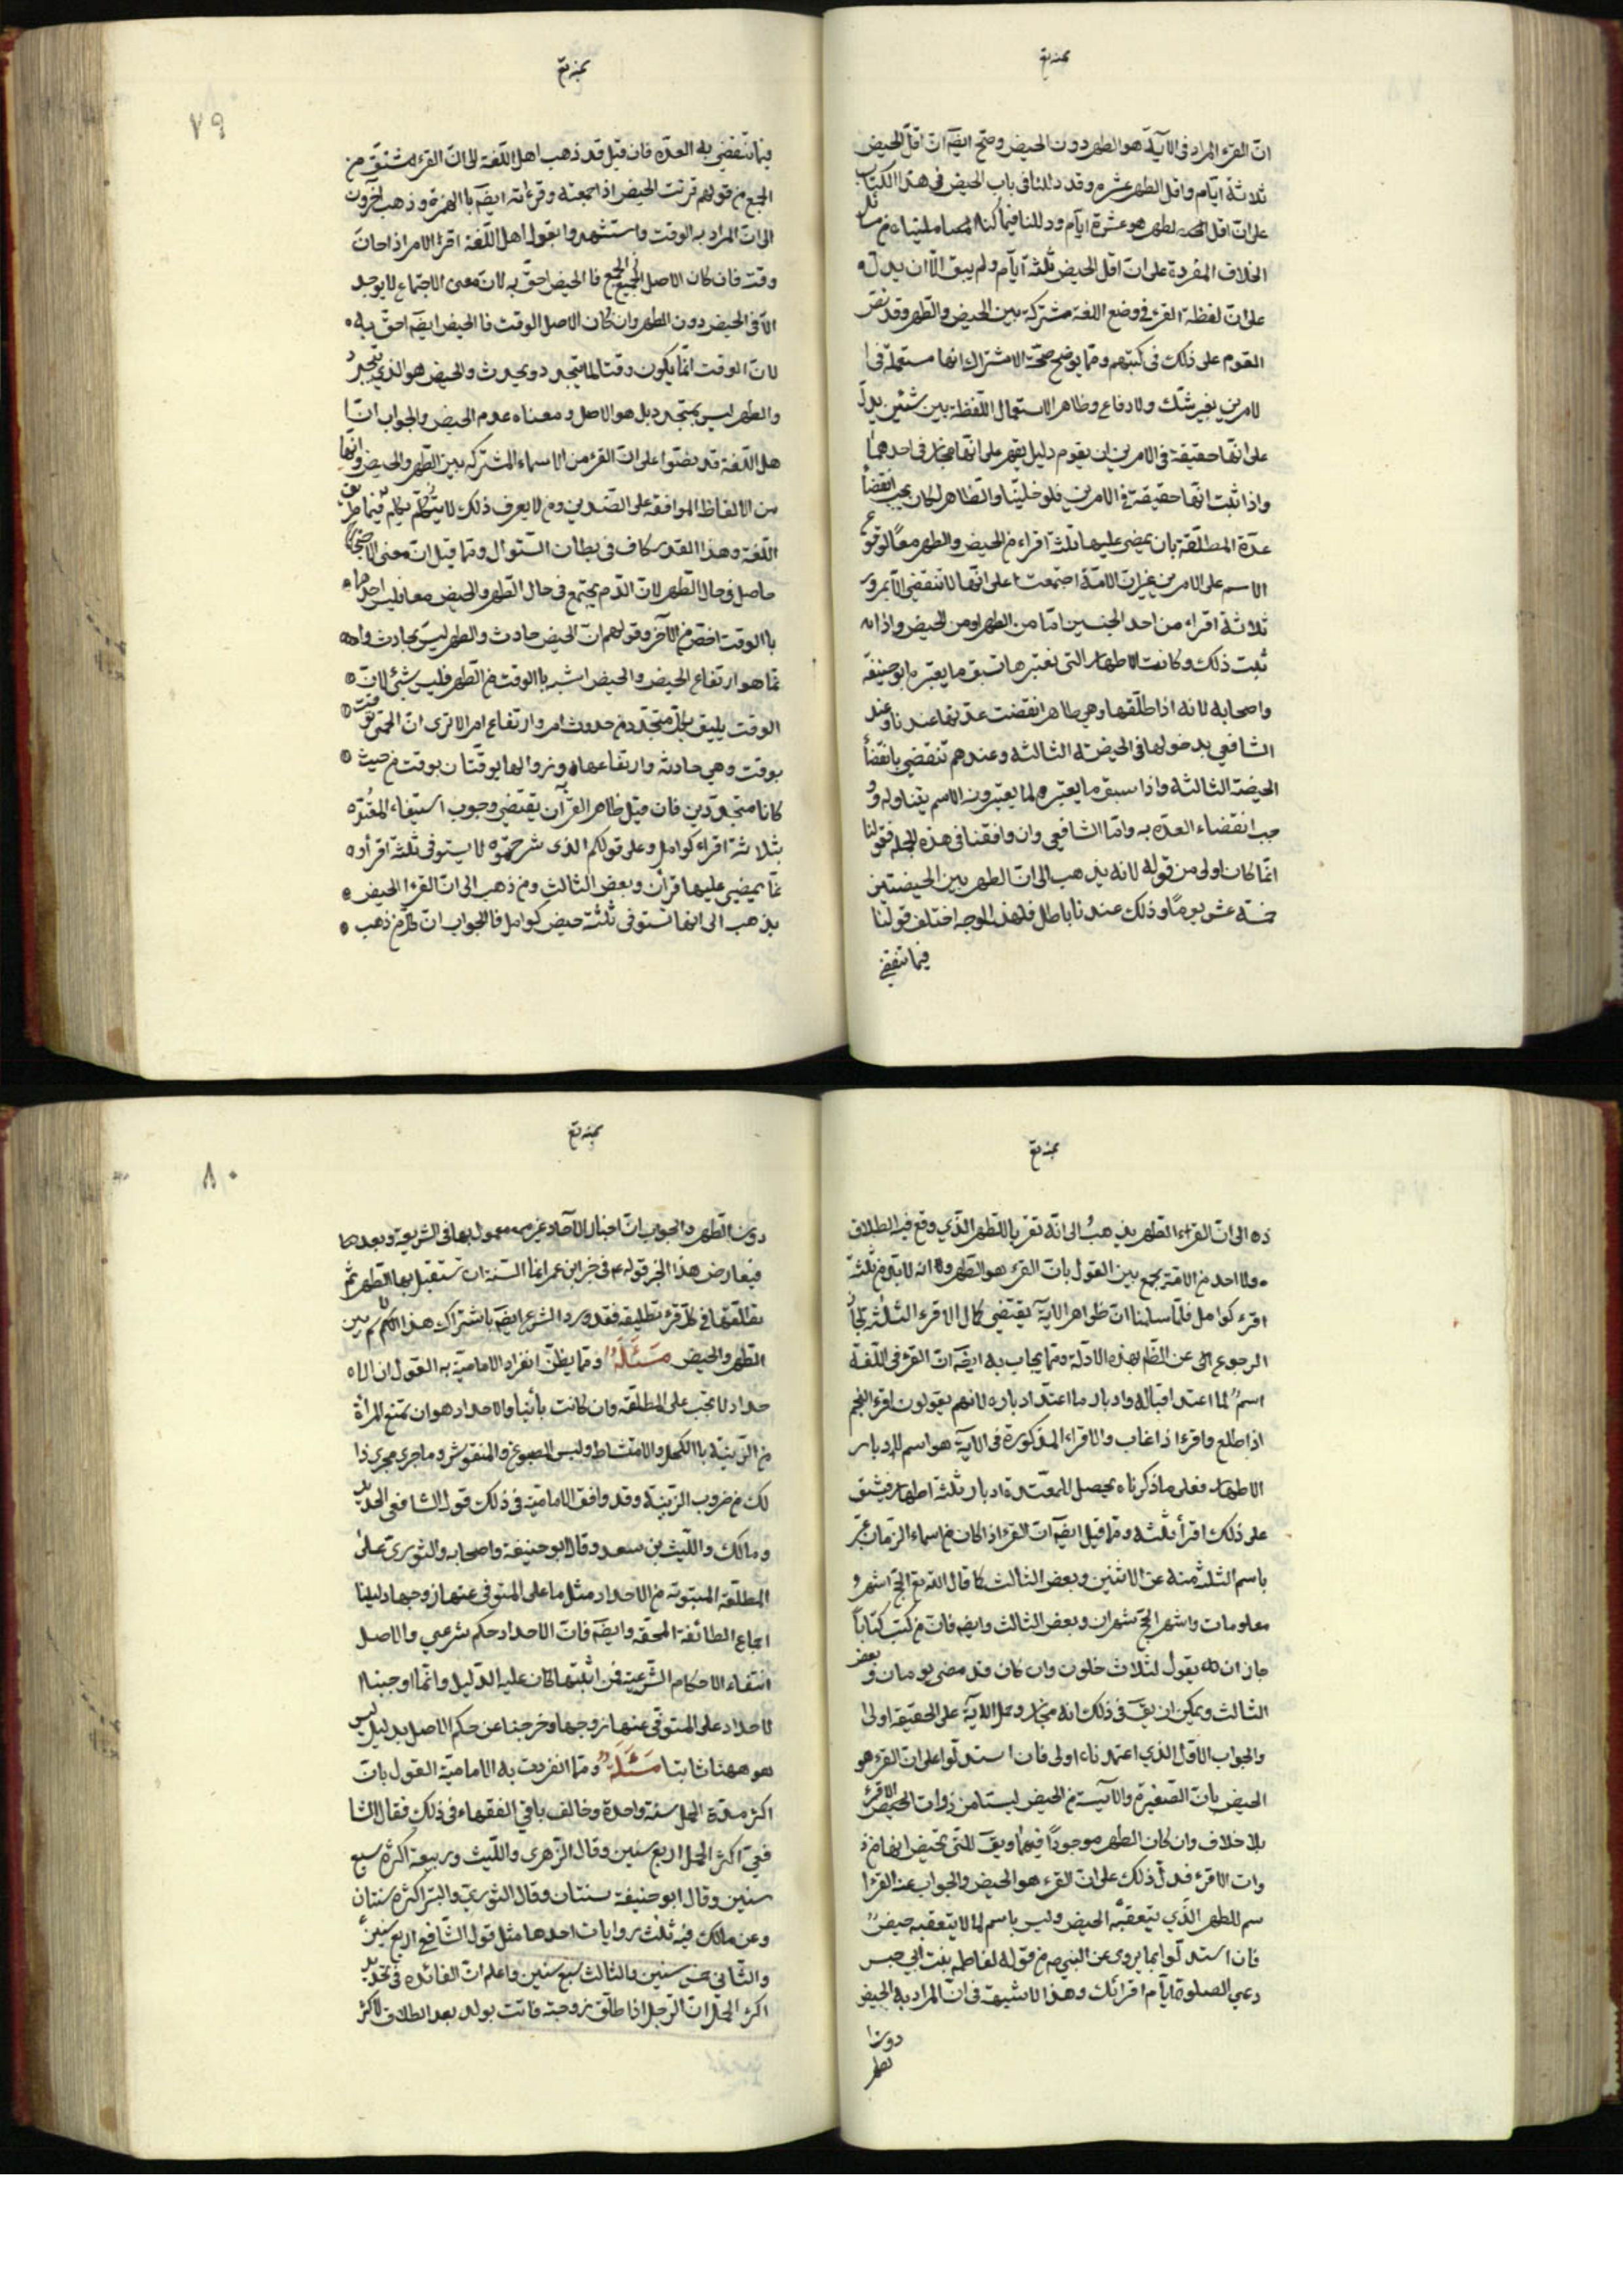 ان القرء المراد فى الآية هو الطهر دون الحيض وصح ايضا ان اقل الحيض
ثلاثة ايام واقل الطهر عشرة وقد دللنا فى باب الحيض فى هذا الكتاب
على ان اقل الطهر هو عشرة ايام ودللنا فيما كنا امليناه من مسائل
الخلاف المفردة على ان اقل الحيض ثلثة ايام ولم يبق الا ان يدل
على ان لفظة القرء فى وضع اللغة مشتركة بين الحيض والطهر وقد نص
القوم على ذلك فى كتبهم ومما يوضح صحة الاشتراك انها مستعملة فى ا
لامرين بغير شك ولا دفاع وظاهر الاستعمال اللفظة بين شيئين يدل
على انها حقيقة فى الامرين الى ان يقوم دليل يقهر على انها مجاز فى احدهما
واذا ثبت انها حقيقة فى الامرين فلو خلينا والظاهر لكان يجب انقضاء
عدة المطلقة بان يمضى عليها ثلثة اقراء من الحيض والطهر معا لوقوع
الاسم على الامرين غير ان الامة اجتمعت على انها لا تنقضى الا بمرور
ثلاثة اقراء من احد الجنسين اما من الطهر او من الحيض واذا
ثبت ذلك وكانت الاطهار التى نعتبرها تسبق ما يعتبره ابو حنيفة
واصحابه لانه اذا طلقها وهى طاهر انقضت عدتها عندنا وعند
الشافعي بدخولها فى الحيضة الثالثة وعندهم تنقضى بانقضاء
الحيضة الثالثة واذا سبق ما يعتبره لما يعتبرونه الاسم يتناوله و
جب انقضاء العدة به واما الشافعي وان وافقنا فى هذه الجملة فقولنا
انما كان اولى من قوله لانه يذهب الى ان الطهر بين الحيضتين
خمسة عشر يوما وذلك عندنا باطل فلهذا الوجه اختلف قولنا
فيما تنقضى
٧٩
فيما تنقضي به العدة فان قيل قد ذهب اهل اللغة الى ان القرء مشتق من
الجمع من قولهم قريت الحيض اذا جمعته وقرءاته ايضا بالهمزة وذهب آخرون
الى ان المراد به الوقت واستشهدوا بقول اهل اللغة اقرء الامر اذا حان
وقته فان كان الاصل الجمع فالحيض احق به لان معنى الاجتماع لا يوجد
الا فى الحيض دون الطهر وان كان الاصل الوقت فالحيض ايضا احق به
لان الوقت انما يكون وقتا لما يتجدد ويحدث والحيض هو الذي يتجدد
والطهر ليس بمتجدد بل هو الاصل ومعناه عدم الحيض والجواب ان ا
هل اللغة قد نصوا على ان القرء من الاسماء المشتركة بين الطهر والحيض وانها
من الالفاظ الموافقة على الضدين ومن لا يعرف ذلك لا يكلم فيما طريقه
اللغة وهذا القدر كاف فى بطلان السؤال ومما قيل ان معنى الاجتماع
حاصل فى حال الطهر لان الدم يجتمع فى حال الطهر والحيض معا فليس احدهما
بالوقت اخص من الآخر وقولهم ان الحيض حادث والطهر ليس بحادث وا
نما هو ارتفاع الحيض والحيض اشبه بالوقت من الطهر فليس شئ لان
الوقت يليق بكل متجدد من حدوث امر وارتفاع امر الا ترى ان الحمى توقت
بوقت وهى حادثة وارتفاعها وزوالها يوقتان بوقت من حيث
كانا متجددين فان قيل ظاهر القرآن يقتضى وجوب استيفاء المعتدة
بثلاثة اقراء كوامل وعلى قولكم الذى شرحتموه لا يستوفى ثلثة اقراء
نما يمضى عليها قرآن وبعض الثالث ومن ذهب الى ان القرء الحيض
يذهب الى انها تستوفى ثلثة حيض كوامل فالجواب ان كل من ذهب
الى ان القرء الطهر يذهب الى انه تعتد بالطهر الذي وقع فيه الطلاق
ولا احد من الامة يجمع بين القول بان القرء هو الطهر وانه لا بد من ثلثة
اقرء كوامل فلما سلمنا ان ظواهر الآية يقتضى كمال الاقرء الثلثة لجاز
الرجوع الى عن الظاهر بهذه الادلة ومما يجاب به ايضا ان القرء فى اللغة
اسم لما اعتد اقباله وادبار ما اعتد ادباره لانهم يقولون اقرء النجم
اذا طلع واقرء اذا غاب والاقراء المذكورة فى الآية هو اسم لادبار
الاطهار فعلى ما ذكرناه يحصل للمعتدة ادبار ثلثة اطهار فتشق
على ذلك اقراء ثلثة ومما قيل ايضا ان القرء اذا كان من اسماء الزمان عبر
باسم الثلثة منه عن الاثنين وبعض الثالث كما قال الله تع الحج اشهر
معلومات واشهر الحج شهران وبعض الثالث وايضا فان من كتب كتابا
جاز ان يقول لثلاث خلون وان كان قد مضى يومان وبعض
الثالث ويمكن ان يق فى ذلك انه مجاز وحمل الآية على الحقيقة اولى
والجواب الاول الذي اعتمدناه اولى فان استدلوا على ان القرء هو
الحيض بان الصغيرة والآيسة من الحيض ليستا من ذوات الاقرء
بلا خلاف وان كان الطهر موجودا فيهما ويق للتى تحيض انها من ذ
وات الاقرء فدل ذلك على ان القرء هو الحيض والجواب عنه القرء ا
سم للطهر الذي يتعقبه الحيض وليس باسم لما لا يتعقبه حيض
فان استدلوا بما يروى عن النبي ص من قوله لفاطمة بنت ابي حبيش
دعي الصلوة ايام اقرائك وهذا لا شبهة فى ان المراد به الحيض
دون ا
لطهر
٨٠
دون الطهر والجواب ان اخبار الآحاد غير معمول بها فى الشريعة وبعد
فيعارض هذا الخبر قوله ع فى خبر ابن عمر انما السنة ان تستقبل بها الطهر ثم
تطلقها فى كل قرء تطليقة فقد ورد الشرع ايضا باشتراك هذا الاسم بين
الطهر والحيض مسئلة ومما يظن انفراد الامامية به القول ان الا
حداد لا يجب على المطلقة وان كانت بائنا والاحداد هو ان تمتنع المرأة
من الزينة بالكحل والامتشاط ولبس المصبوغ والمنقوش وما جرى مجرى ذ
لك من ضروب الزينة وقد وافق الامامية فى ذلك قول الشافعي الجديد
ومالك والليث بن سعد وقال ابو حنيفة واصحابه والثورى على
المطلقة المبتوتة من الاحداد مثل ما على المتوفى عنها زوجها دليلنا
اجماع الطائفة المحقة وايضا فان الاحداد حكم شرعي والاصل
انتفاء الاحكام الشرعية فمن اثبتها كان عليه الدليل وانما اوجبنا ا
لاحداد على المتوفى عنها زوجها وخرجنا عن حكم الاصل بدليل ليس
هو ههنا ثابتا مسئلة ومما انفردت به الامامية القول بان
اكثر مدة الحمل سنة واحدة وخالف باقي الفقهاء فى ذلك فقال الشا
فعي اكثر الحمل اربع سنين وقال الزهرى والليث وربيعة اكثره سبع
سنين وقال ابو حنيفة سنتان وقال الثوري والبتي اكثره سنتان
وعن مالك فيه ثلث روايات احدها مثل قول الشافعي اربع سنين
والثاني خمس سنين والثالث سبع سنين واعلم ان الفائدة فى تحديد
اكثر الحمل ان الرجل اذا طلق زوجته فاتت بولد بعد الطلاق لاكثر